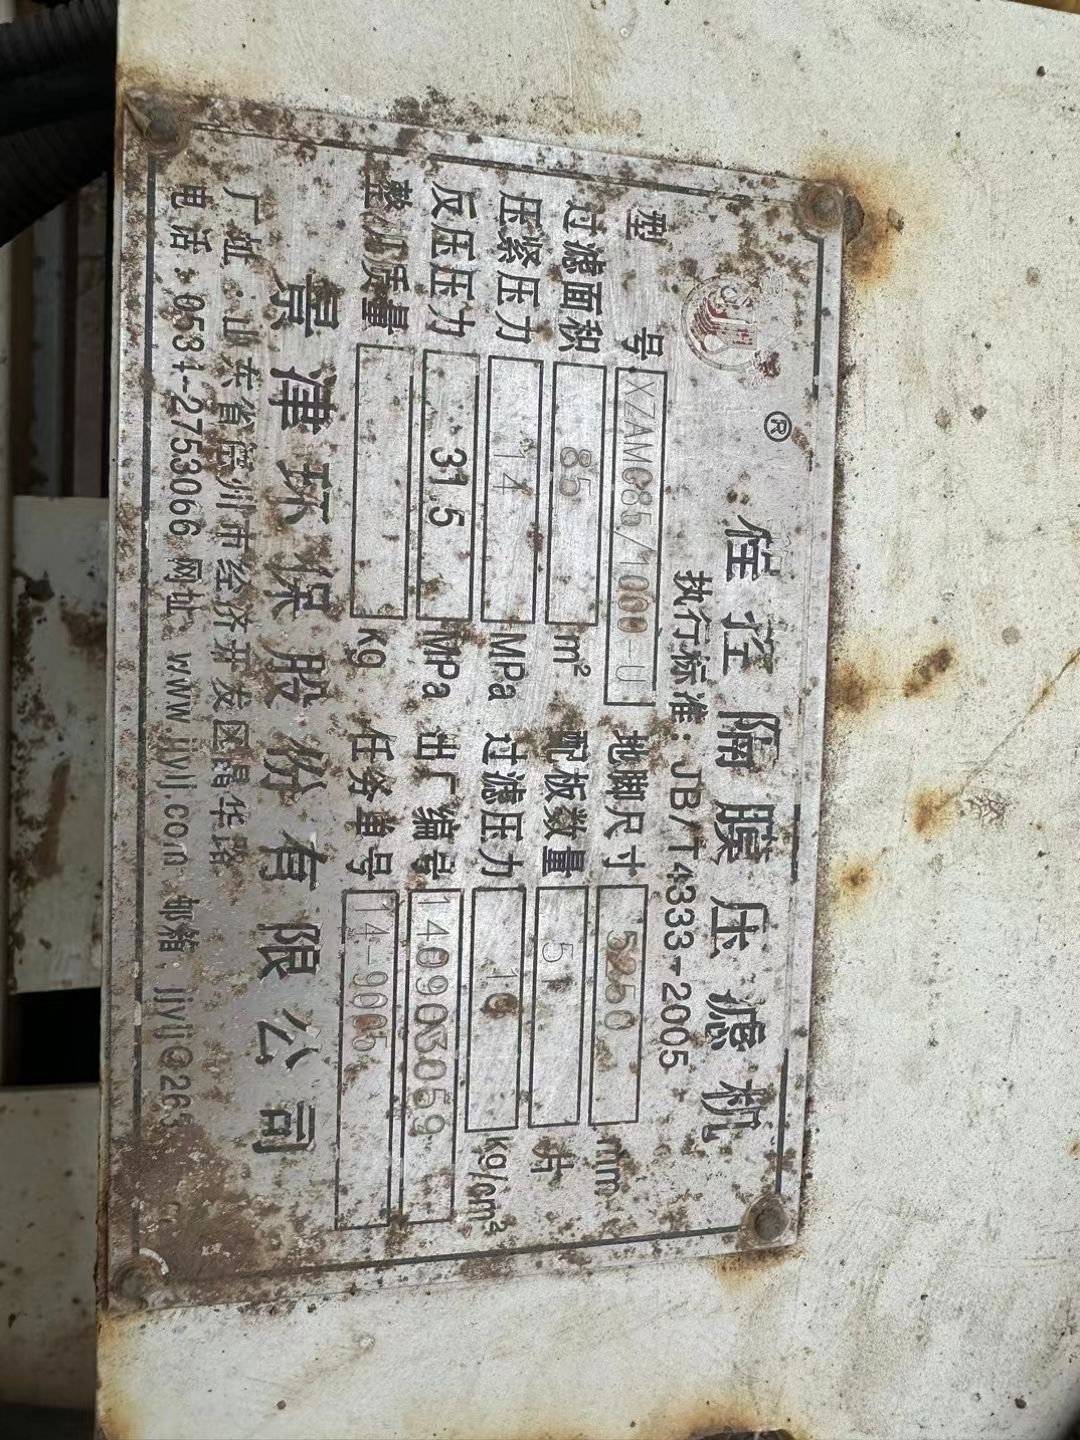 ®
程控隔膜压滤机
执行标准：JB/T4333-2005
型号 XZAMG85/1000-U 地脚尺寸 5250 mm
过滤面积 85 m² 配板数量 51 片
压紧压力 14 MPa 过滤压力 10 kg/cm²
反压压力 31.5 MPa 出厂编号 140903059
整机质量 kg 任务单号 14-9005
景津环保股份有限公司
厂址：山东省德州市经济开发区晶华路
电话：0534-2753066 网址：www.jjylj.com 邮箱：jjylj@263